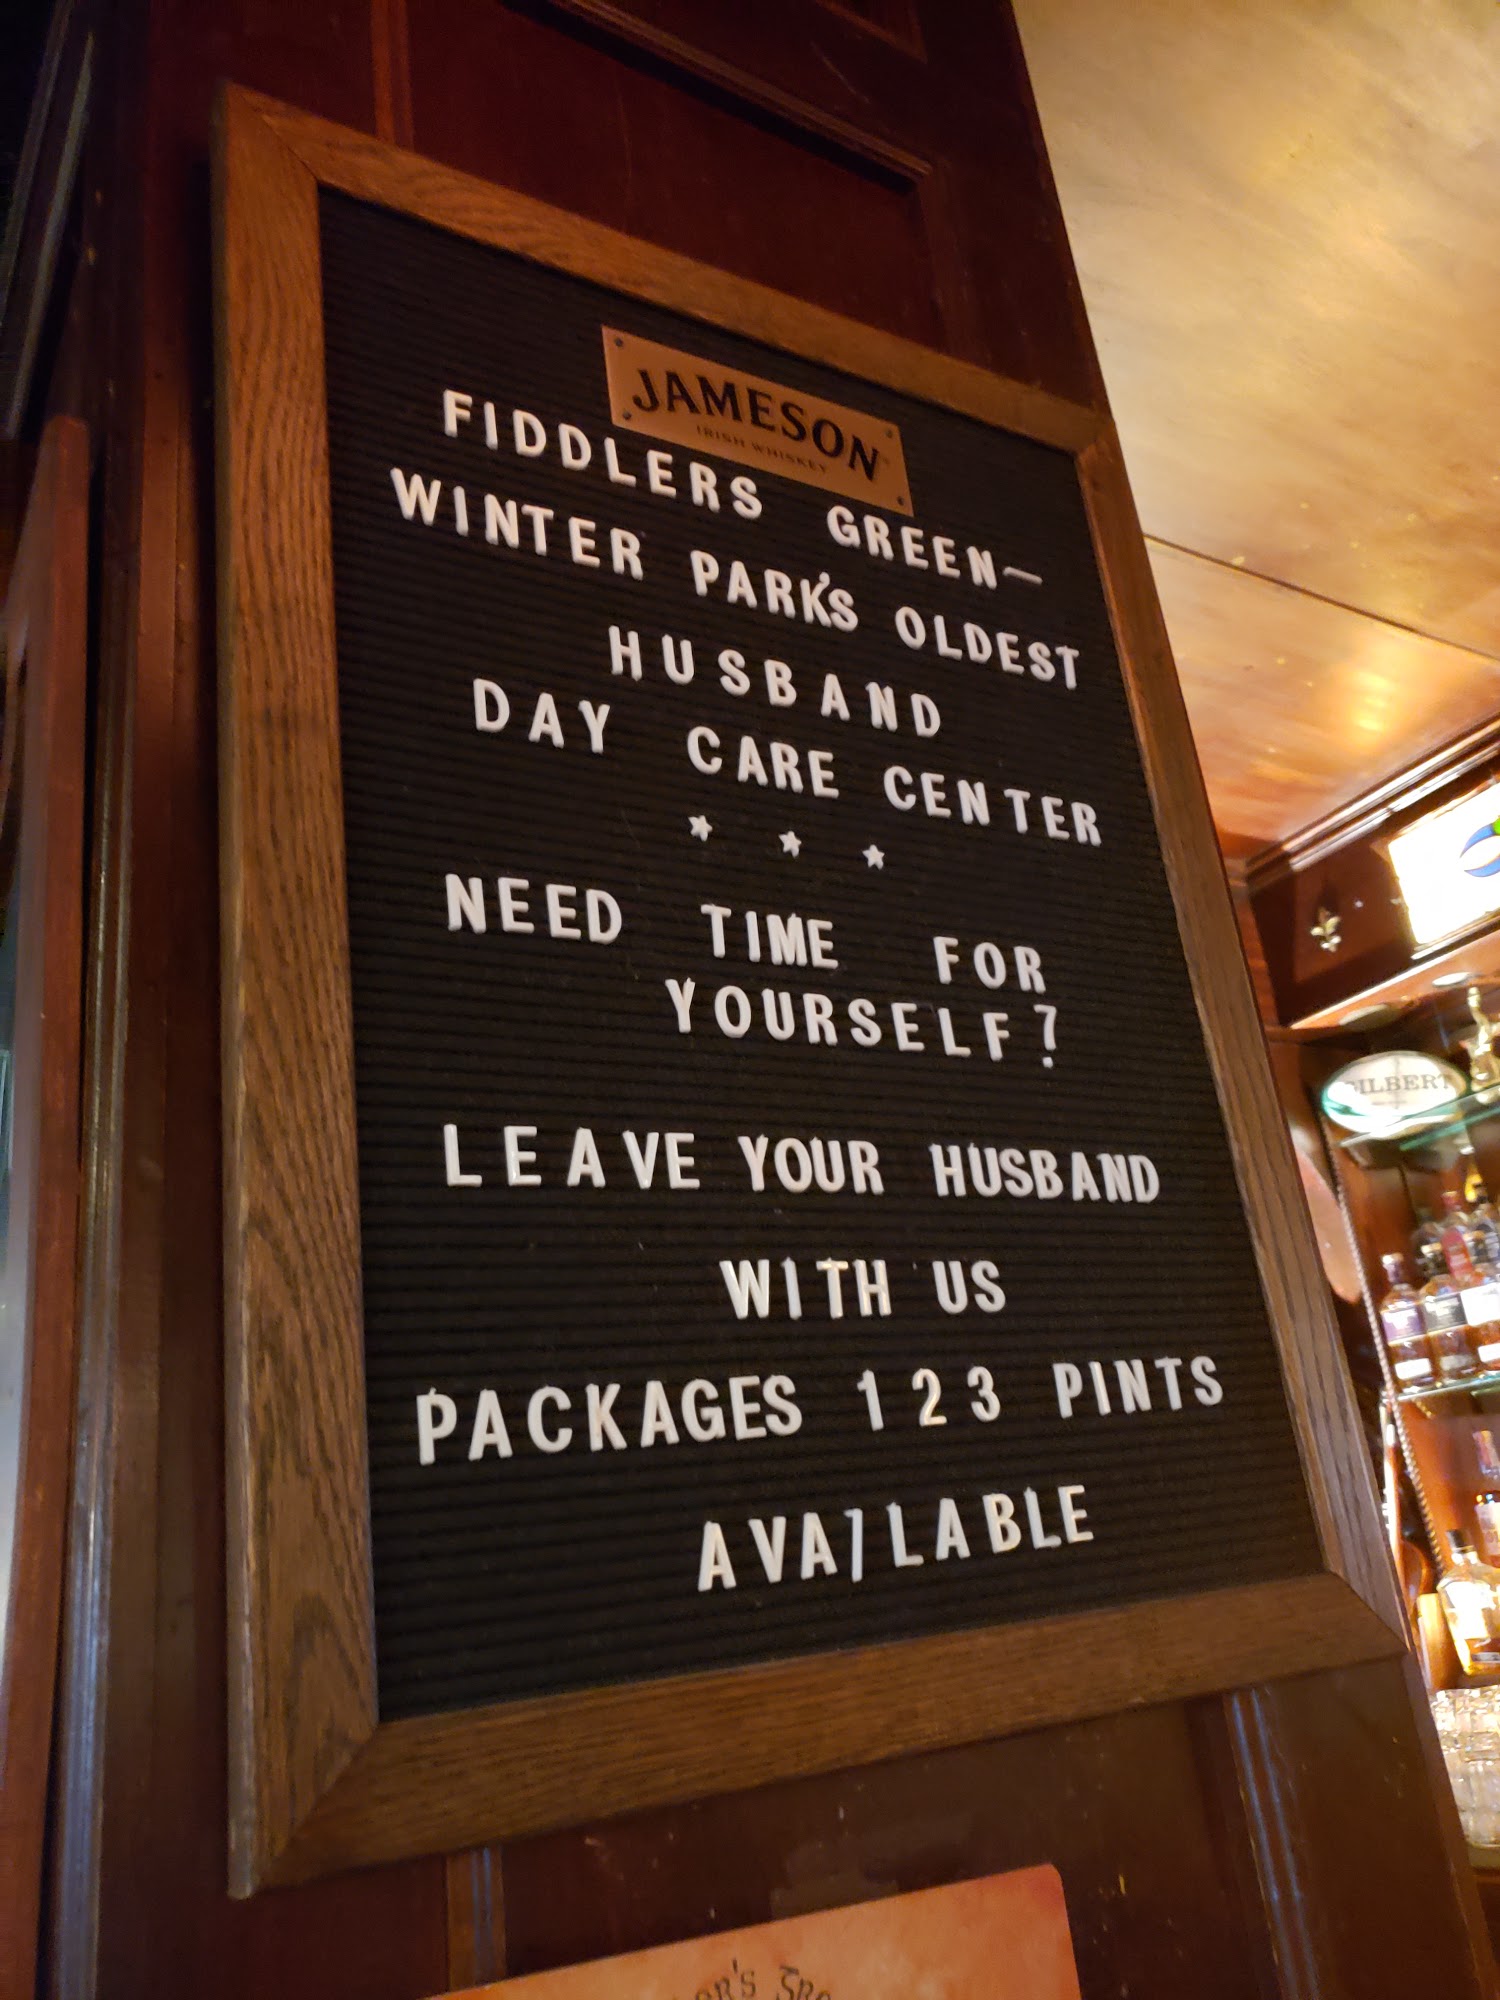 JAMESON
IRISH WHISKEY
FIDDLERS GREEN—
WINTER PARK'S OLDEST
HUSBAND
DAY CARE CENTER
★ ★ ★
NEED TIME FOR
YOURSELF?
LEAVE YOUR HUSBAND
WITH US
PACKAGES 1 2 3 PINTS
AVAILABLE
GILBERT